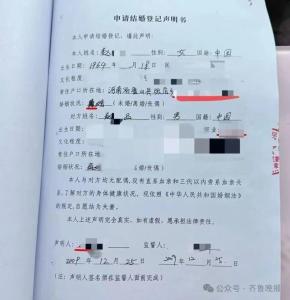 申请结婚登记声明书
本人申请结婚登记，谨此声明：
本人姓名： 女 国籍：中国
出生日期：1964年 月18日
文化程度：
常住户口所在地：河南
婚姻状况： (未婚/离婚/丧偶)
对方姓名： 男 国籍：中国
出生日期：
文化程度：
常住户口所在地：
婚姻状况： /离婚/丧偶)
本人与对方均无配偶，没有直系血亲和三代以内旁系血亲关
系，了解对方的身体健康状况。现依照《中华人民共和国婚姻法》
的规定，自愿结为夫妻。
本人上述声明完全真实，如有虚假，愿承担法律责任。
声明人： 监誓人：
2009年12月25日 2009年12月25日
(注：声明人签名须在监誓人面前完成)
公众号·齐鲁晚报